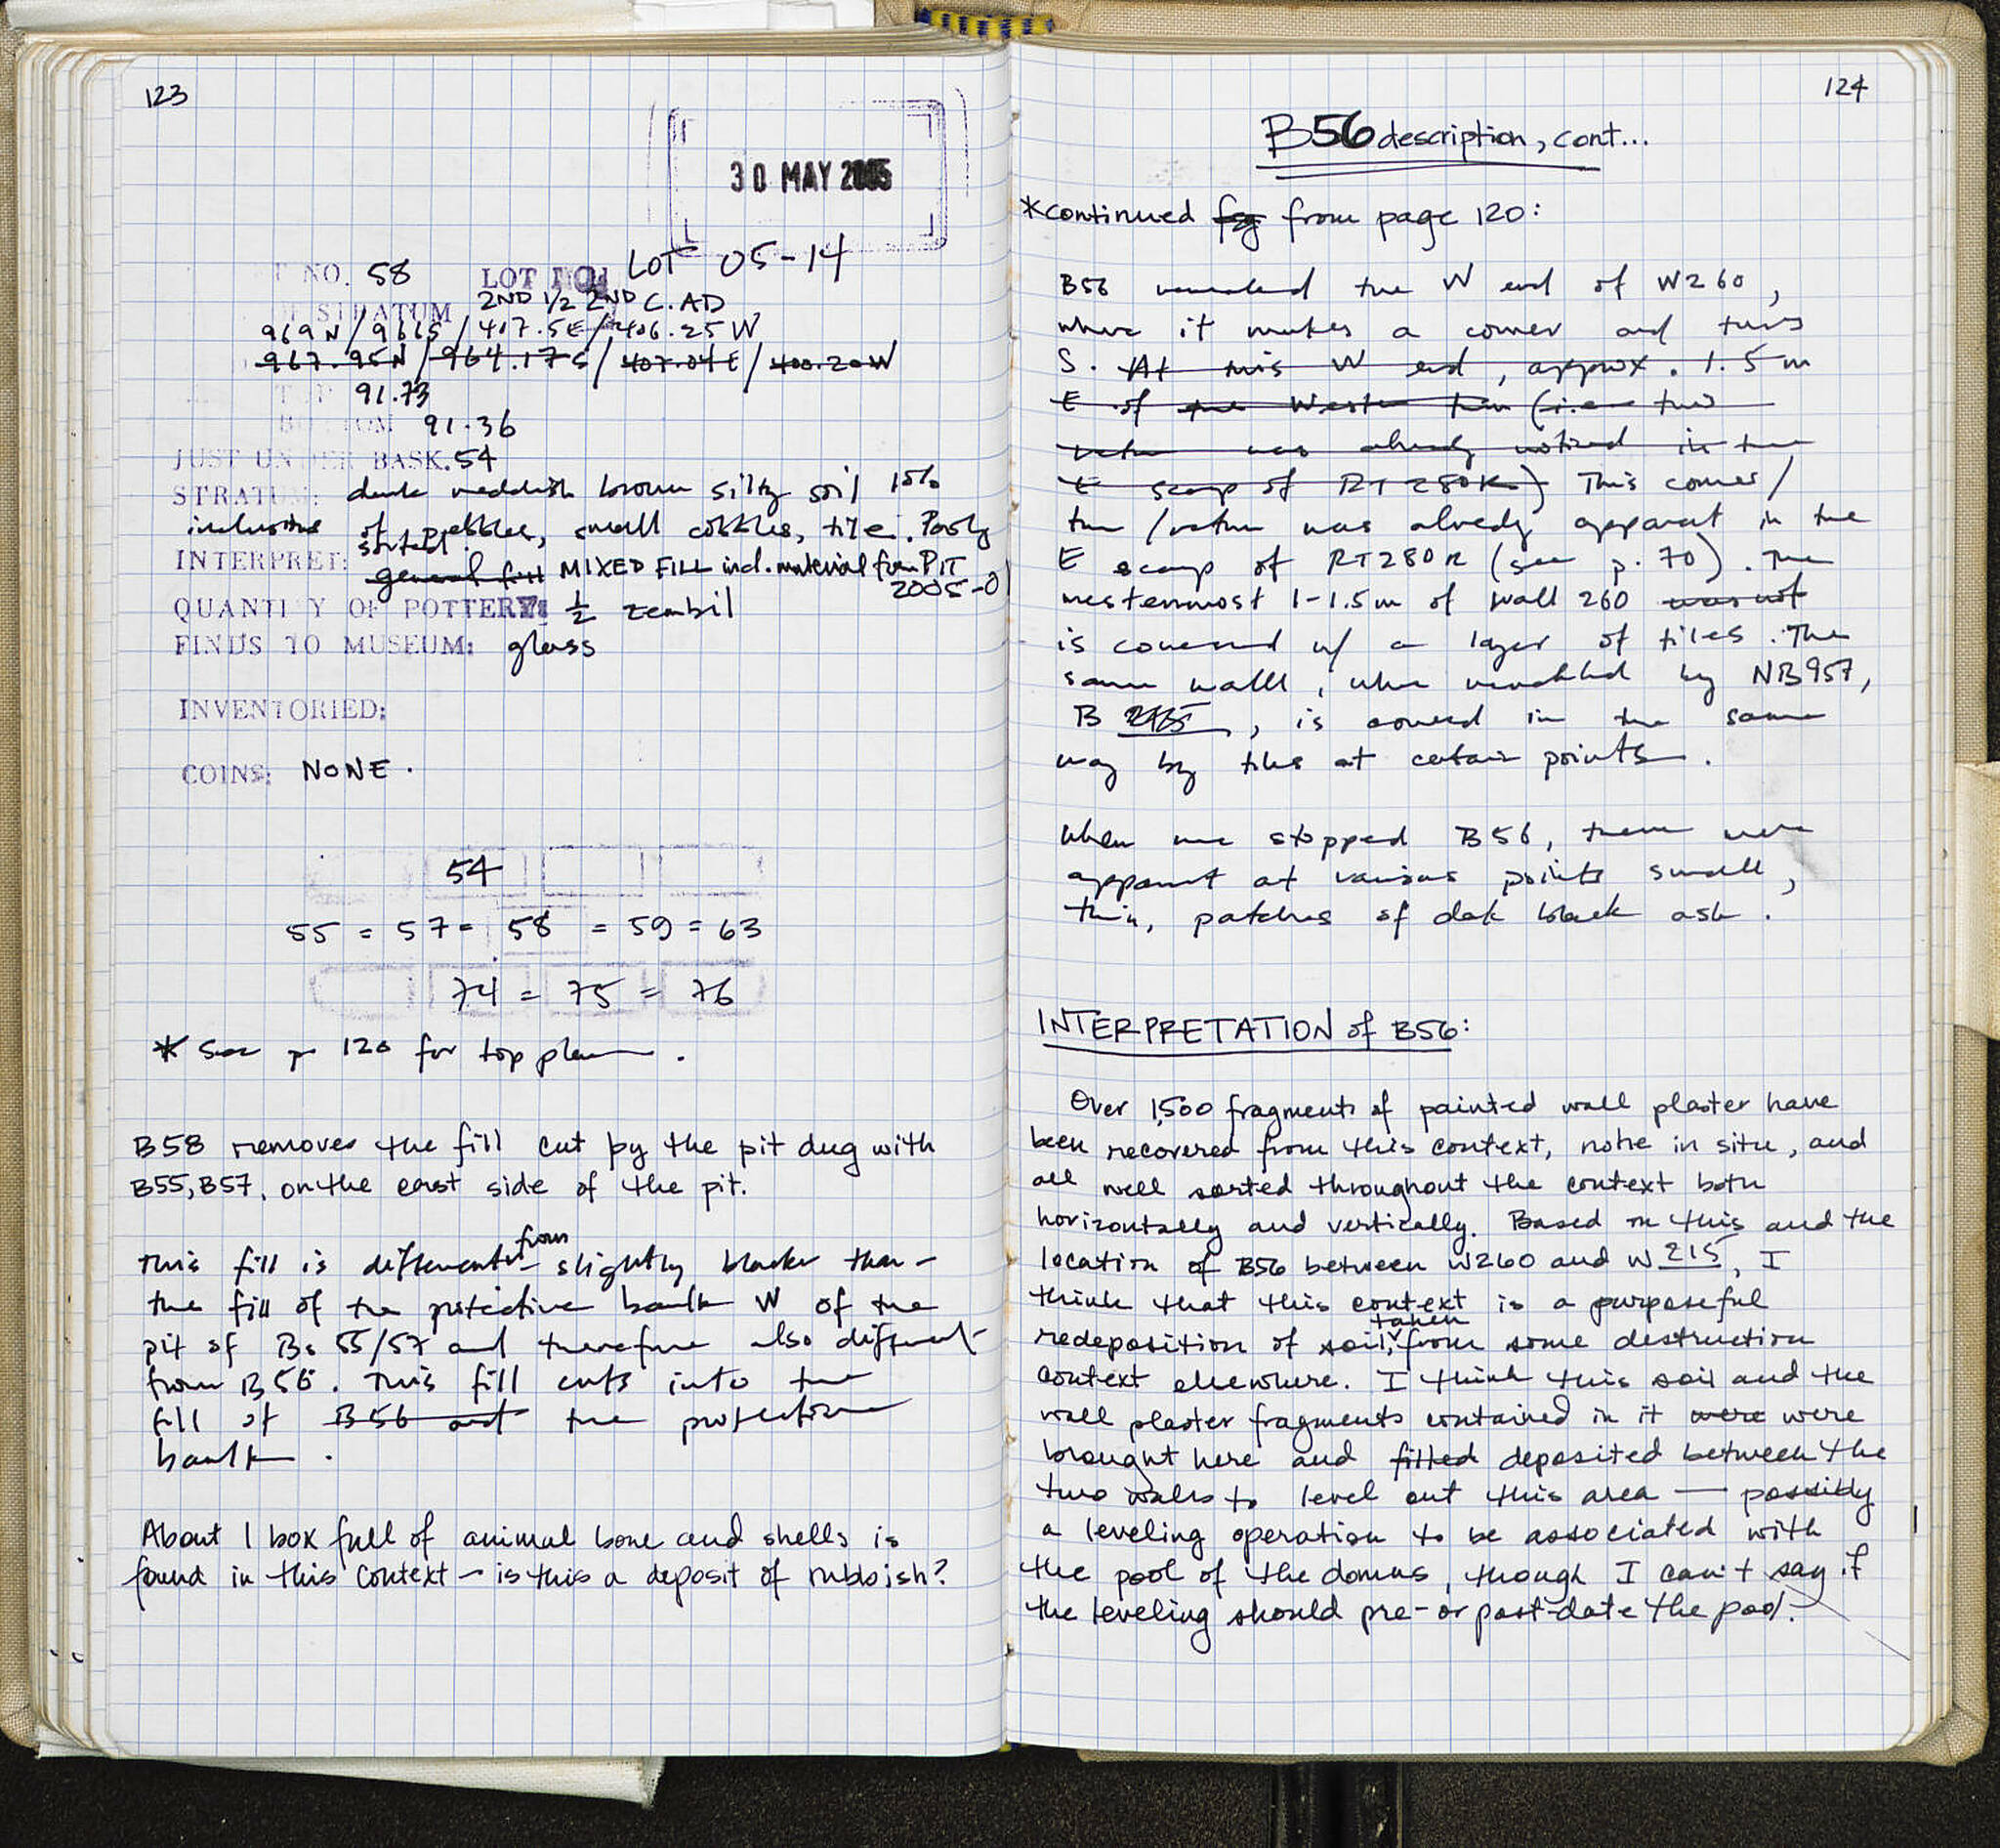 123
30 MAY 2005
NO. 58 LOT NO. LOT 05-14
STRATUM 2ND 1/2 2ND C. AD
969N/966S/407.5E/406.25W
967.95N/964.17S/407.04E/400.20W
TOP 91.73
BOTTOM 91.36
JUST UNDER BASK. 54
STRATUM: dark reddish brown silty soil 15%
inclusions of pebbles, small cobbles, tile. Poorly
sorted.
INTERPRET: general fill MIXED FILL incl. material from PIT
2005-01
QUANTITY OF POTTERY: 1/2 zembil
FINDS TO MUSEUM: glass
INVENTORIED:
COINS: NONE.
54
55 = 57 = 58 = 59 = 63
74 = 75 = 76
* See p 120 for top plan.
B58 removes the fill cut by the pit dug with
B55, B57, on the east side of the pit.
This fill is different from slightly blacker than
the fill of the protective baulk W of the
pit of Bs 55/57 and therefore also different
from B56. This fill cuts into the
fill of B56 and the protective
baulk.
About 1 box full of animal bone and shells is
found in this context - is this a deposit of rubbish?
124
B56 description, cont...
*continued from page 120:
B56 revealed the W end of W260,
where it makes a corner and turns
S. At this W end, approx. 1.5m
E of the Western turn (i.e. this
return was already noticed in the
E scarp of RT280K) This corner/
turn/return was already apparent in the
E scarp of RT280K (see p. 70). The
westernmost 1-1.5m of wall 260 was not
is covered w/ a layer of tiles. The
same wall, when revealed by NB957,
B, is covered in the same
way by tiles at certain points.
When we stopped B56, there were
apparent at various points small,
thin, patches of dark black ash.
INTERPRETATION of B56:
Over 1,500 fragments of painted wall plaster have
been recovered from this context, none in situ, and
all well sorted throughout the context both
horizontally and vertically. Based on this and the
location of B56 between W260 and W 215, I
think that this context is a purposeful
redeposition of soil, taken from some destruction
context elsewhere. I think this soil and the
wall plaster fragments contained in it were were
brought here and filled deposited between the
two walls to level out this area — possibly
a leveling operation to be associated with
the pool of the domus, though I can't say if
the leveling should pre- or post-date the pool.